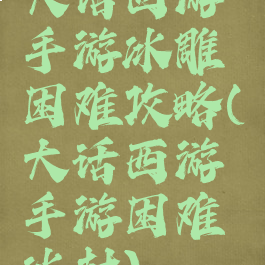 大话西游
手游冰雕
困难攻略(
大话西游
手游困难